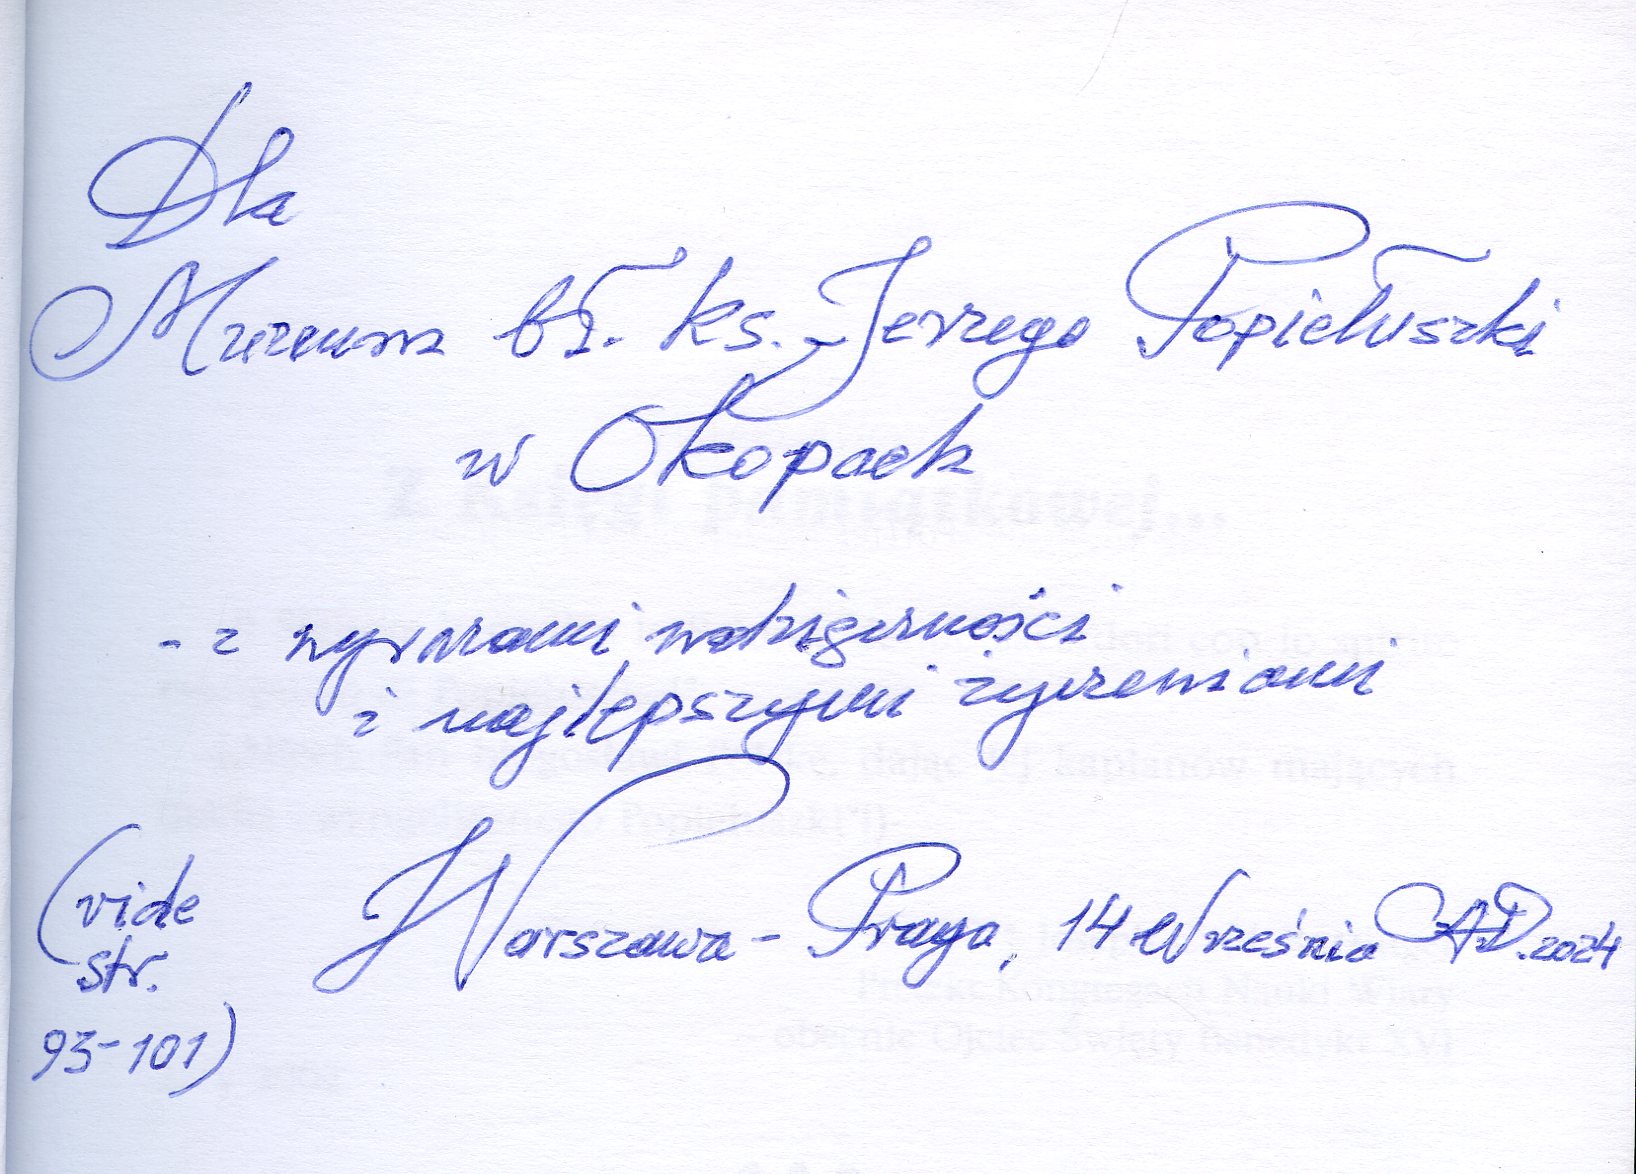 Dla
Muzeum bł. ks. Jerzego Popiełuszki
w Okopach
- z wyrazami wdzięczności
i najlepszymi życzeniami
Warszawa-Praga, 14 Września A.D. 2024
(vide
str.
93-101)